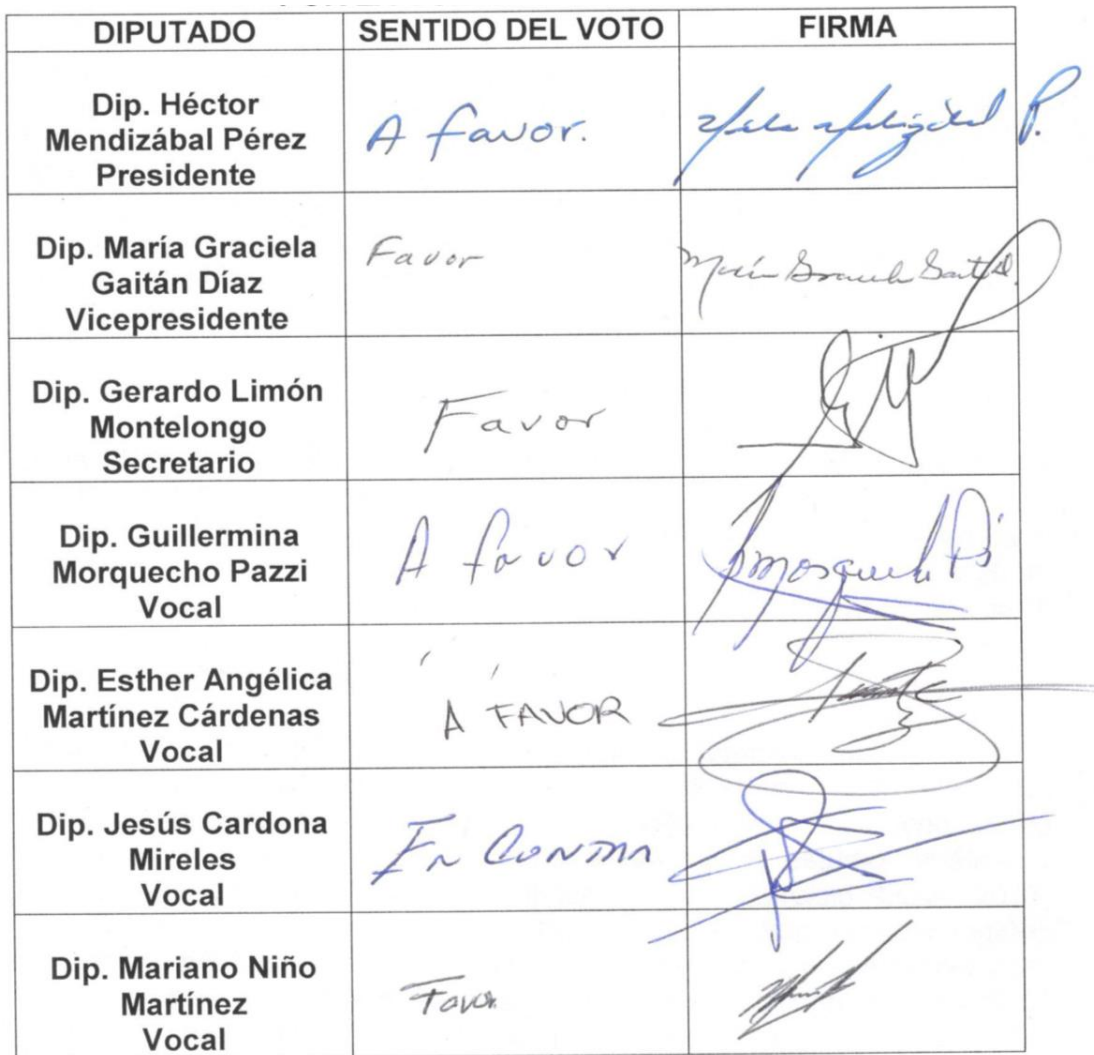 DIPUTADO SENTIDO DEL VOTO FIRMA
Dip. Héctor
Mendizábal Pérez
Presidente
A favor.
P.
Dip. María Graciela
Gaitán Díaz
Vicepresidente
Favor
María Graciela Gait D.
Dip. Gerardo Limón
Montelongo
Secretario
Favor
Dip. Guillermina
Morquecho Pazzi
Vocal
A favor
Dip. Esther Angélica
Martínez Cárdenas
Vocal
A FAVOR
Dip. Jesús Cardona
Mireles
Vocal
En Contra
Dip. Mariano Niño
Martínez
Vocal
Favor